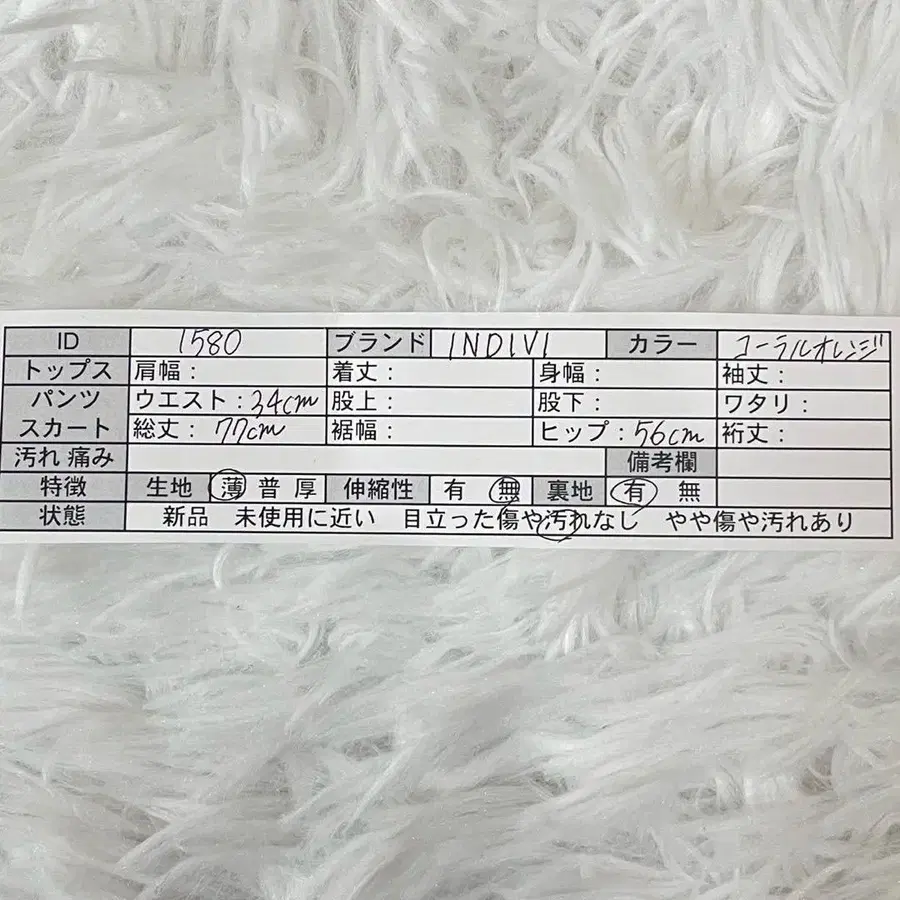 ID 1580 ブランド INDIVI カラー コーラルオレンジ
トップス 肩幅： 着丈： 身幅： 袖丈：
パンツ ウエスト：34cm 股上： 股下： ワタリ：
スカート 総丈：77cm 裾幅： ヒップ：56cm 裄丈：
汚れ 痛み 備考欄
特徴 生地 薄 普 厚 伸縮性 有 無 裏地 有 無
状態 新品 未使用に近い 目立った傷や汚れなし やや傷や汚れあり